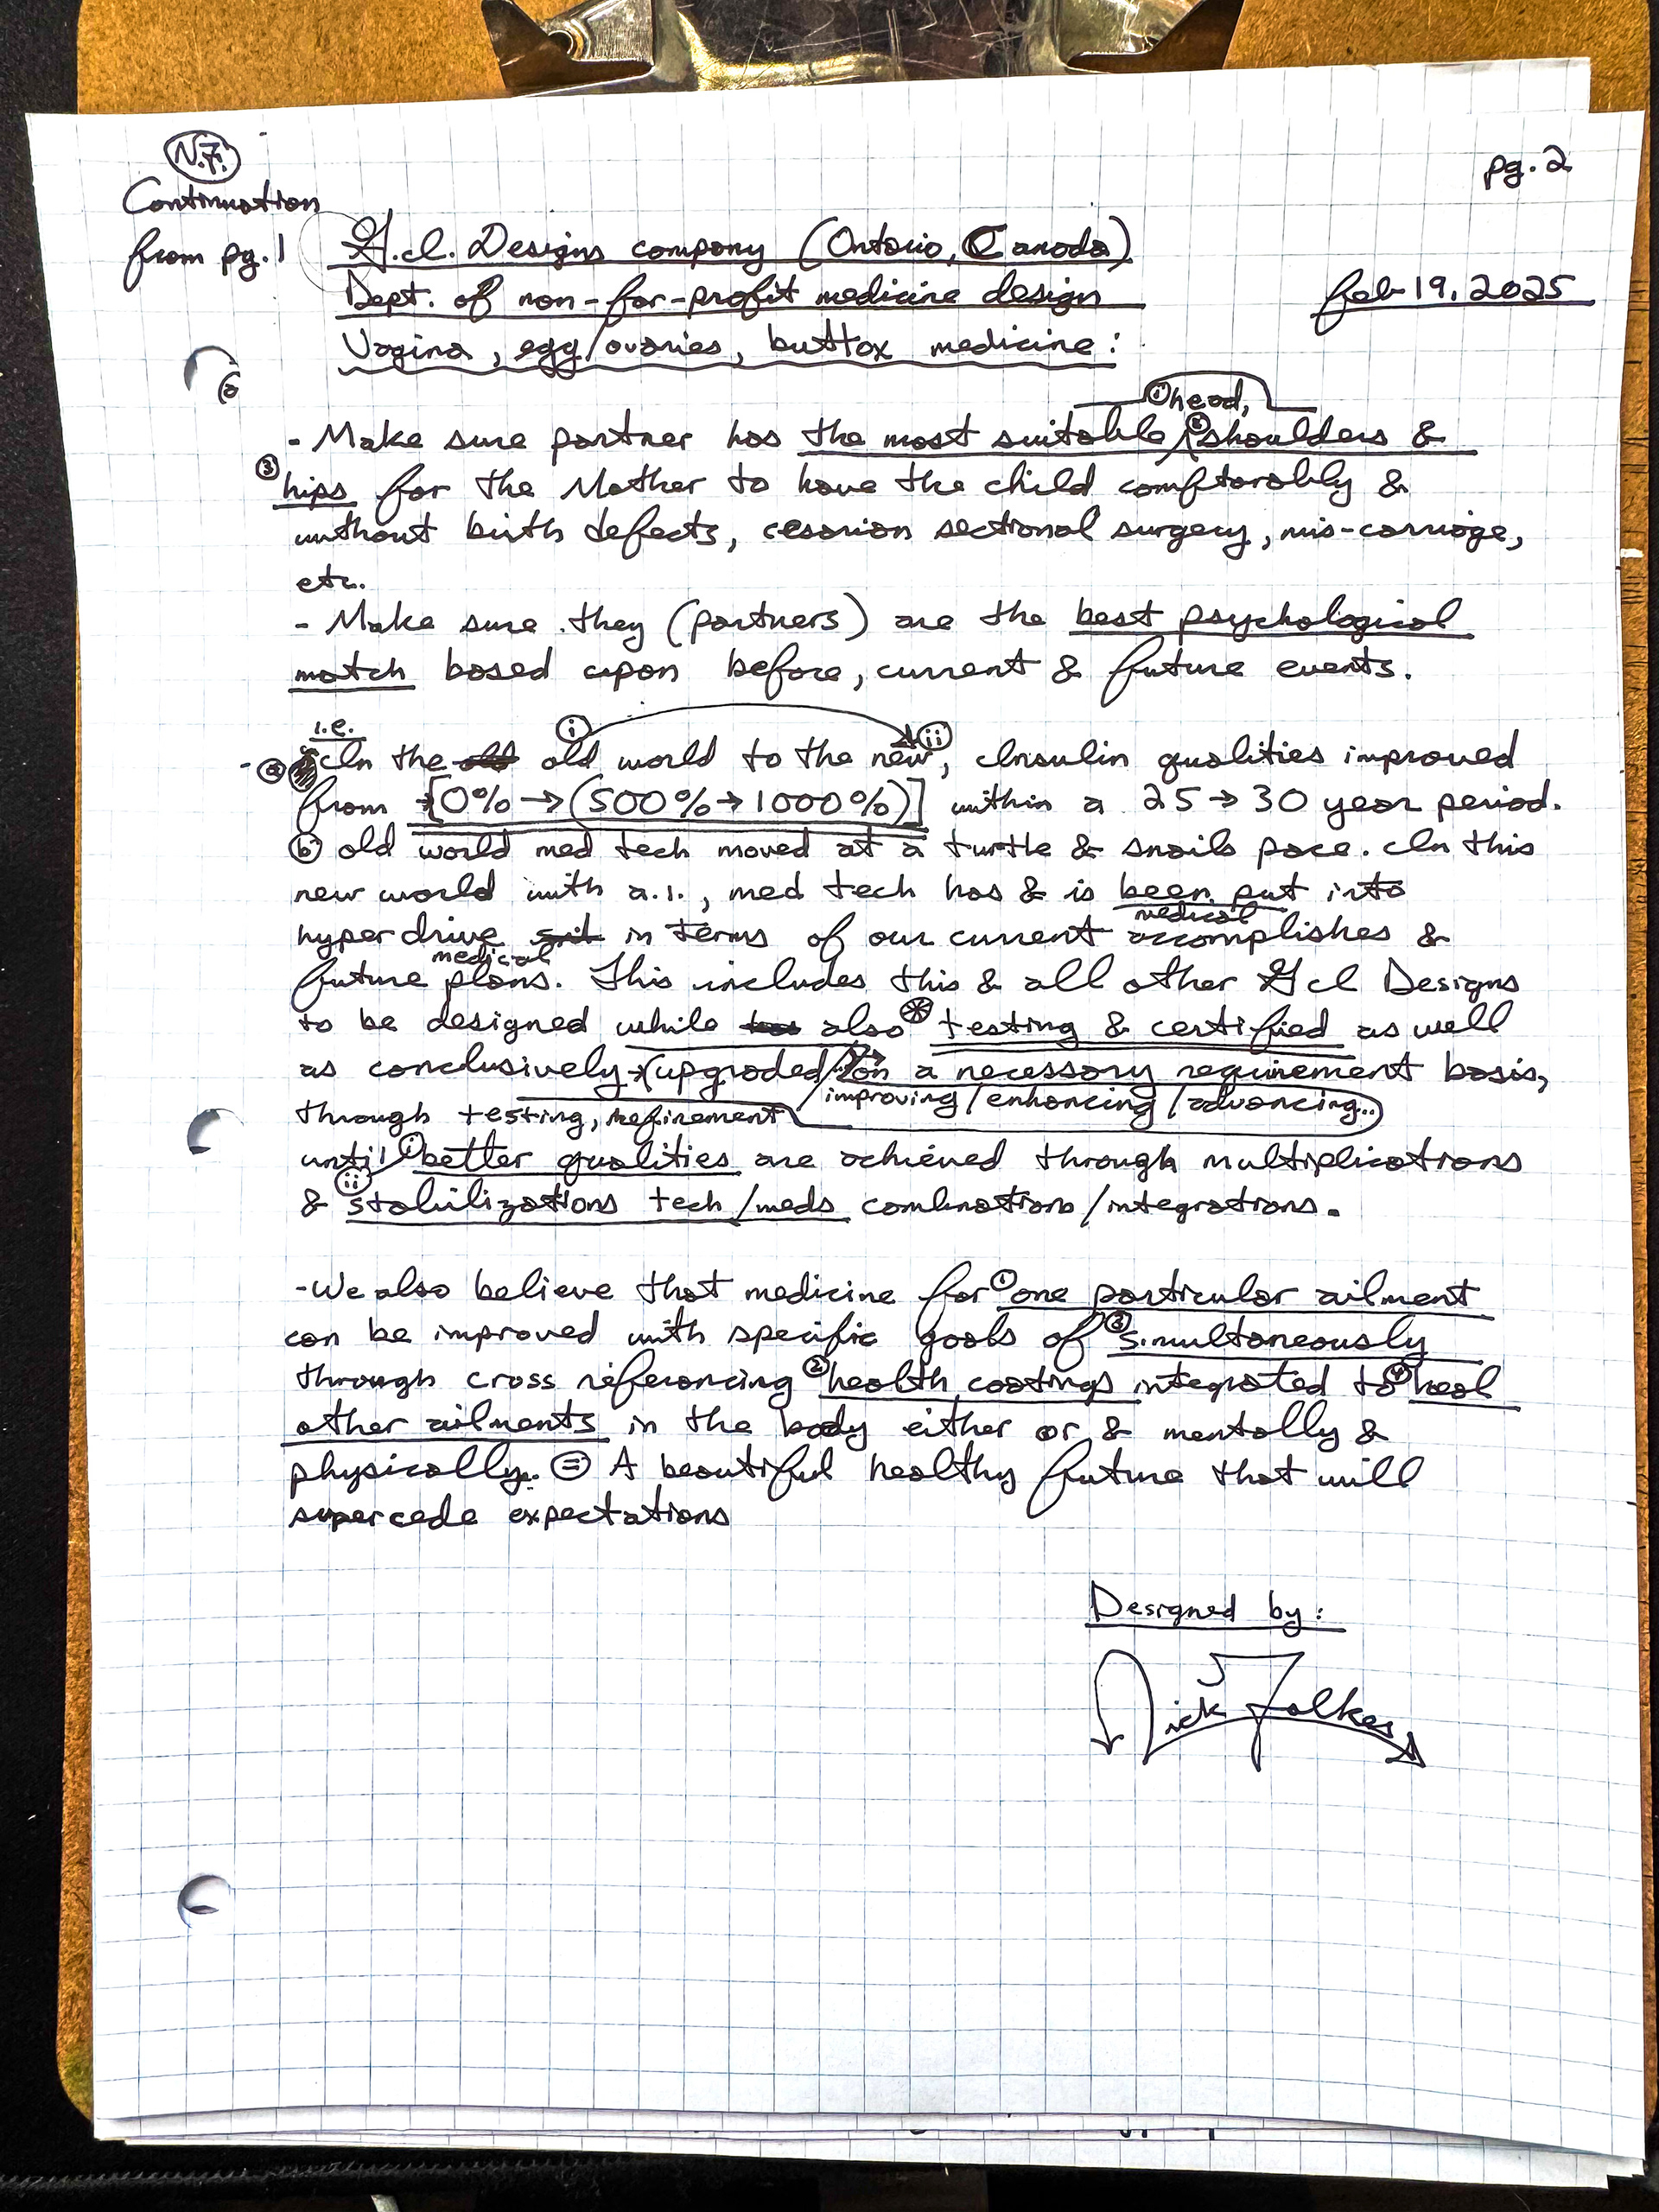 N.F.
pg. 2
Continuation
from pg. 1
G.cl. Designs company (Ontario, Canada)
Dept. of non-for-profit medicine design
feb 19, 2025
Vagina, egg/ovaries, buttox medicine:
① head,
- Make sure partner has the most suitable ② shoulders &
③ hips for the Mother to have the child comftorably &
without birth defects, cesarian sectional surgery, mis-carriage,
etc.
- Make sure they (partners) are the best psychological
match based upon before, current & future events.
i.e. ⓘ ⓘⓘ
- ⓐ In the old old world to the new, Insulin qualities improved
from [0% → (500% → 1000%)] within a 25 → 30 year period.
ⓑ old world med tech moved at a turtle & snails pace. In this
new world with a.i., med tech has & is been put into
medical
hyperdrive in terms of our current accomplishes &
medical
future plans. This includes this & all other G cl Designs
to be designed while also testing & certified as well
as conclusively → (upgraded/ on a necessary requirement basis,
improving/enhancing/advancing..)
through testing, refinement
until ⓘ better qualities are achieved through multiplications
& ⓘⓘ stabilizations tech/meds combinations/integrations.
- We also believe that medicine for ① one particular ailment
can be improved with specific goals of ③ simultaneously
through cross referencing ② health coatings integrated to ④ heal
other ailments in the body either or & mentally &
physically.. = A beautiful healthy future that will
supercede expectations
Designed by:
Nick Folkes